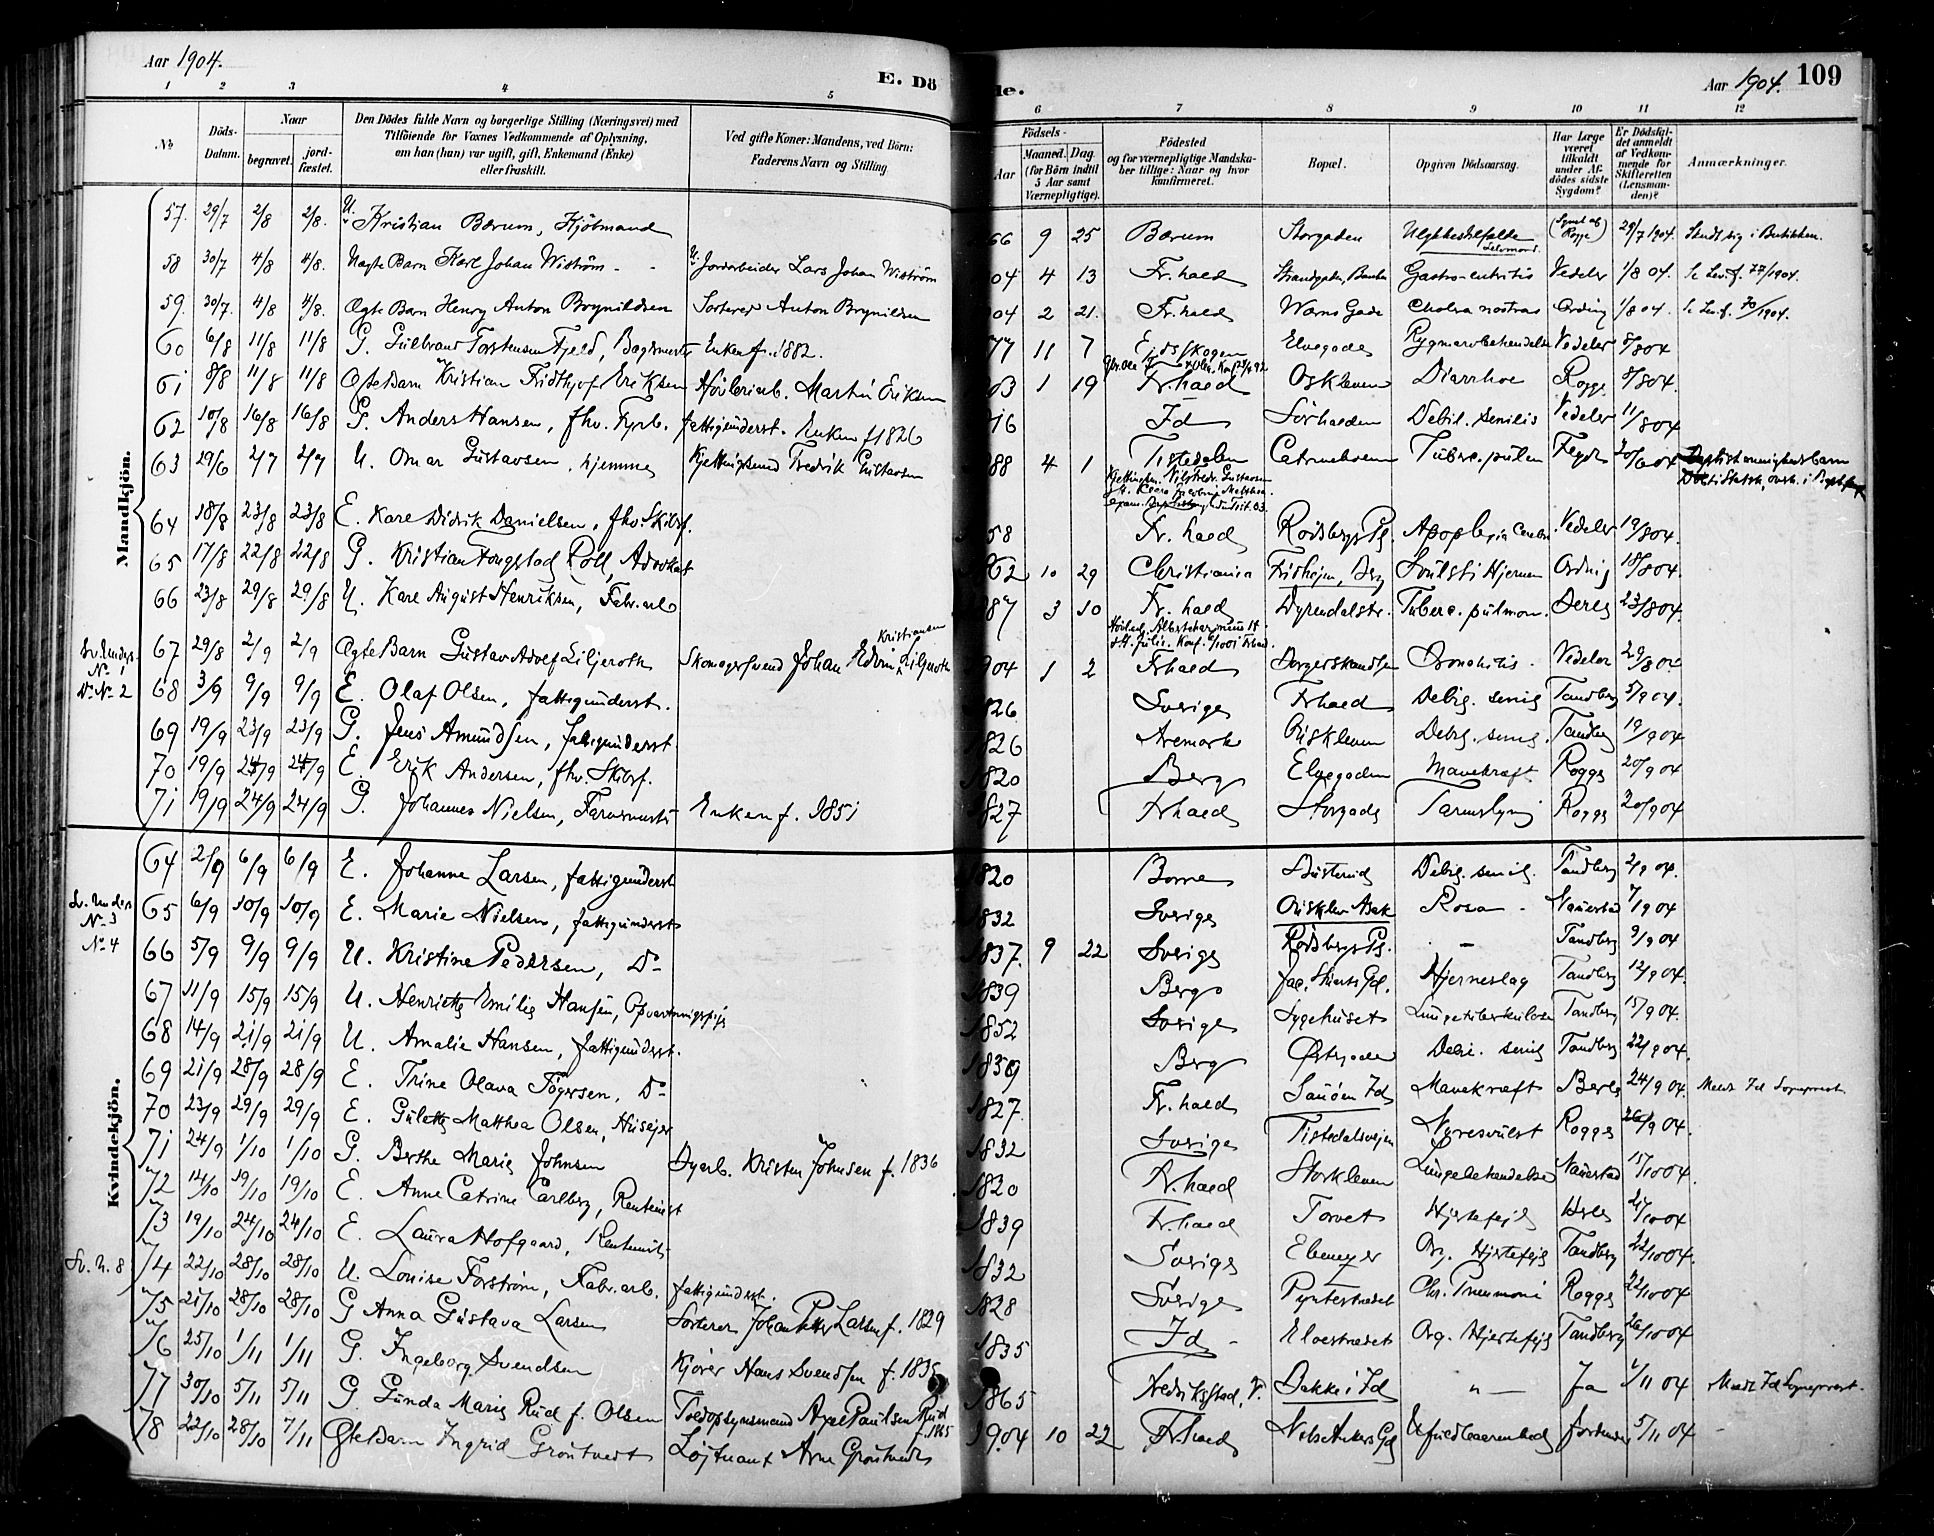 Aar 1904.
E. Dö
de.
Aar 1904. 109
1 2 3 4 5 6 7 8 9 10 11 12
No
Döds-Datum.
Naar
begravet.
jordfæstet.
Den Dödes fulde Navn og borgerlige Stilling (Næringsvei) med
Tilföiende for Voxnes Vedkommende af Oplysning,
om han (hun) var ugift, gift, Enkemand (Enke)
eller fraskilt.
Ved gifte Koner: Mandens, ved Börn:
Faderens Navn og Stilling
Födsels-
Aar
Maaned. Dag
(for Börn indtil
5 Aar samt
Værnepligtige).
Födested
og for værnepligtige Mandska-
ber tillige: Naar og hvor
konfirmeret.
Bopæl.
Opgiven Dödsaarsag.
Har Læge
været
tilkaldt
under Af-
dödes sidste
Sygdom?
Er Dödsfal-
det anmeldt
af Vedkom-
mende for
Skifteretten
(Lensman-
den)?
Anmærkninger.
Mandkjön.
57. 29/7 2/8 2/8. U. Kristian Bærum, Kjöbmand 66 9 25 Bærum Storgaden Ulykkestilfælde Selvmord. (Synet af Rogge) 29/7 1904. Skudt sig i Butikken.
58 30/7 4/8 4/8. Uægte Barn Karl Johan Wiström U. Jordarbeider Lars Johan Wiström 04 4 13 Fr.hald Gastro-entritis Vedeler 1/8 04.
59. 30/7. 4/8 4/8. Ægte Barn Henry Anton Brynildsen Sorterer Anton Brynildsen 04 2 21. Fr.hald Warns Gade Cholera nostras Ording 1/8 04.
60 6/8 11/8 11/8 G. Gulbrand Torstensen Fjeld, Enken f. 1882. 77 11 7 Eidsskogen Elvegaden Rygmarvbetændelse Vedeler 8/8 04
61 8/8 11/8 11/8 Ægte Barn Kristian Fridthjof Eriksen Høvleriarb. Martin Eriksen 03 1 19 Fr.hald Oskleven Diarrhoe Rogge 8/8 04
62 10/8 16/8 16/8 G. Anders Hansen, fhv. Fyrb. fattigunderst. Enken f 1826 16 Id Sørhalden Debil. senilis Vedeler 11/8 04
63 29/6 2/7 2/7 U. Omar Gustavsen, hjemme Kjettingsmed Fredrik Gustavsen 88 4 1 Tistedalen Tuberc. pulm 30/6 04
64 18/8 23/8 23/8 E. Karl Didrik Danielsen, fhv. Skibsf. 58 Fr. hald Rødsbergs Pl. Apoplexia Cerebri Vedeler 19/8 04.
65 17/8 22/8 22/8 G. Kristian Roll, Advokat 62 10 29 Christiania Fridheim, Berg Svulst i Hjernen Ording 18/8 04.
66 23/8 29/8 29/8 U. Karl August Henriksen, Fabr. arb 87 3 10 Fr. hald Dyrendalstr. Tuberc. pulmon. 23/8 04.
Sv. Unders. No 1 67 29/8 2/9 2/9 Ægte Barn Gustav Adolf Liljeroth Skomagersvend Johan Edvin Kristiansen Liljeroth 1904 1 2 Frhald Borgerskandsen Bronchitis. Vedeler 29/8 04
Do No 2 68 3/9 9/9 9/9 E. Olaf Olsen, fattigunderst. 1826 Sverige Frhald Debil. senil Tandberg 5/9 04.
69 19/9 23/9 23/9 G. Jens Amundsen, fattigunderst 1826 Aremark Oskleven Debil. senil. Tandberg 19/9 04
70 19/9 24/9 24/9 E. Erik Andersen, fhv. Skibsf. 1820 Berg Elvegaden Mavekræft. Rogge 20/9 04
71 19/9 24/9 24/9 G. Johannes Nielsen, Enken f. 1851 1827 Frhald Storgade Tarmslyng Rogge 20/9 04
Kvindekjön.
64 2/9 6/9 6/9 E. Johanne Larsen, fattigunderst 1820 Borre Busterud Debil. senil. Tandberg 2/9 04.
Sv. Unders No 3 65 6/9 10/9 10/9 E. Marie Nielsen, fattigunderst 1832 Sverige Oskleven Asak Rosa Nauestad 7/9 04
No 4 66 5/9 9/9 9/9 U. Kristine Pedersen, Do 1837. 9 22 Sverige Rødsbergs Pl. - Tandberg 9/9 04
67 11/9 15/9 15/9 U. Henriette Emilie Hansen, Opvartningspige 1839 Berg Jac. Stuarts Gd. Hjerneslag Tandberg 12/9 04.
68 14/9 21/9 21/9 U. Amalie Hansen, fattigunderst. 1852 Sverige Sygehuset Lungetuberkulose Tandberg 15/9 04.
69 21/9 28/9 28/9 E. Trine Olava Tøgersen, Do 1839 Berg Østgaden Debil. senil Tandberg 22/9 04.
70 23/9 29/9 29/9 E. Gulette Matthea Olsen, Huseier 1827. Fr. hald Sauøen Id Mavekræft 24/9 04. Meldt Id Sogneprest.
71 24/9 1/10 1/10 G. Berthe Marie Johnsen Dyarb. Krister Johnsen f. 1836 1832 Sverige Tistedalsveien Nyresvulst Rogge 26/9 04.
72 14/10 19/10 19/10 E. Anne Catrine Carlberg, Rentenist 1820 Fr.hald Storkleven Lungebetændelse Nauestad 15/10 04
73 19/10 24/10 24/10 E. Laura Hofgaard, Rentenist. 1839 Fr.hald Torvet Hjertefeil 21/10 04
Sv. U. 8 74 22/10 28/10 28/10 U. Louise Forström, Fabr.arb. fattigunderst. 1832 Sverige Ebenezer Org. Hjertefeil Tandberg 22/10 04.
75 21/10 28/10 28/10 G Anna Gustava Larsen Sorterer Johan Petter Larsen f. 1829 1828 Sverige Pyntestrædet Chr. Pneumoni Rogge 22/10 04
76 25/10 1/11 1/11 G. Ingeborg Svendsen Kjører Hans Svendsen f. 1835 1835 Id Elvestrædet Org. Hjertefeil Tandberg 26/10 04
77 30/10 5/11 5/11 G. Gunda Marie Rud f. Olsen Toldopsynsmand Axel Paulsen Rud f. 1865 1865 Fredrikstad, V. Bakke i Id " Ja 1/11 04 Meldt Id Sogneprest.
78 22/10 28/10 7/11 Ægte Barn Ingrid Gröntvedt Løitnant Arne Gröntvedt 1904 10 22 Fr.hald Nils Ankers Gd Ufuldbaarenhed 5/11 04